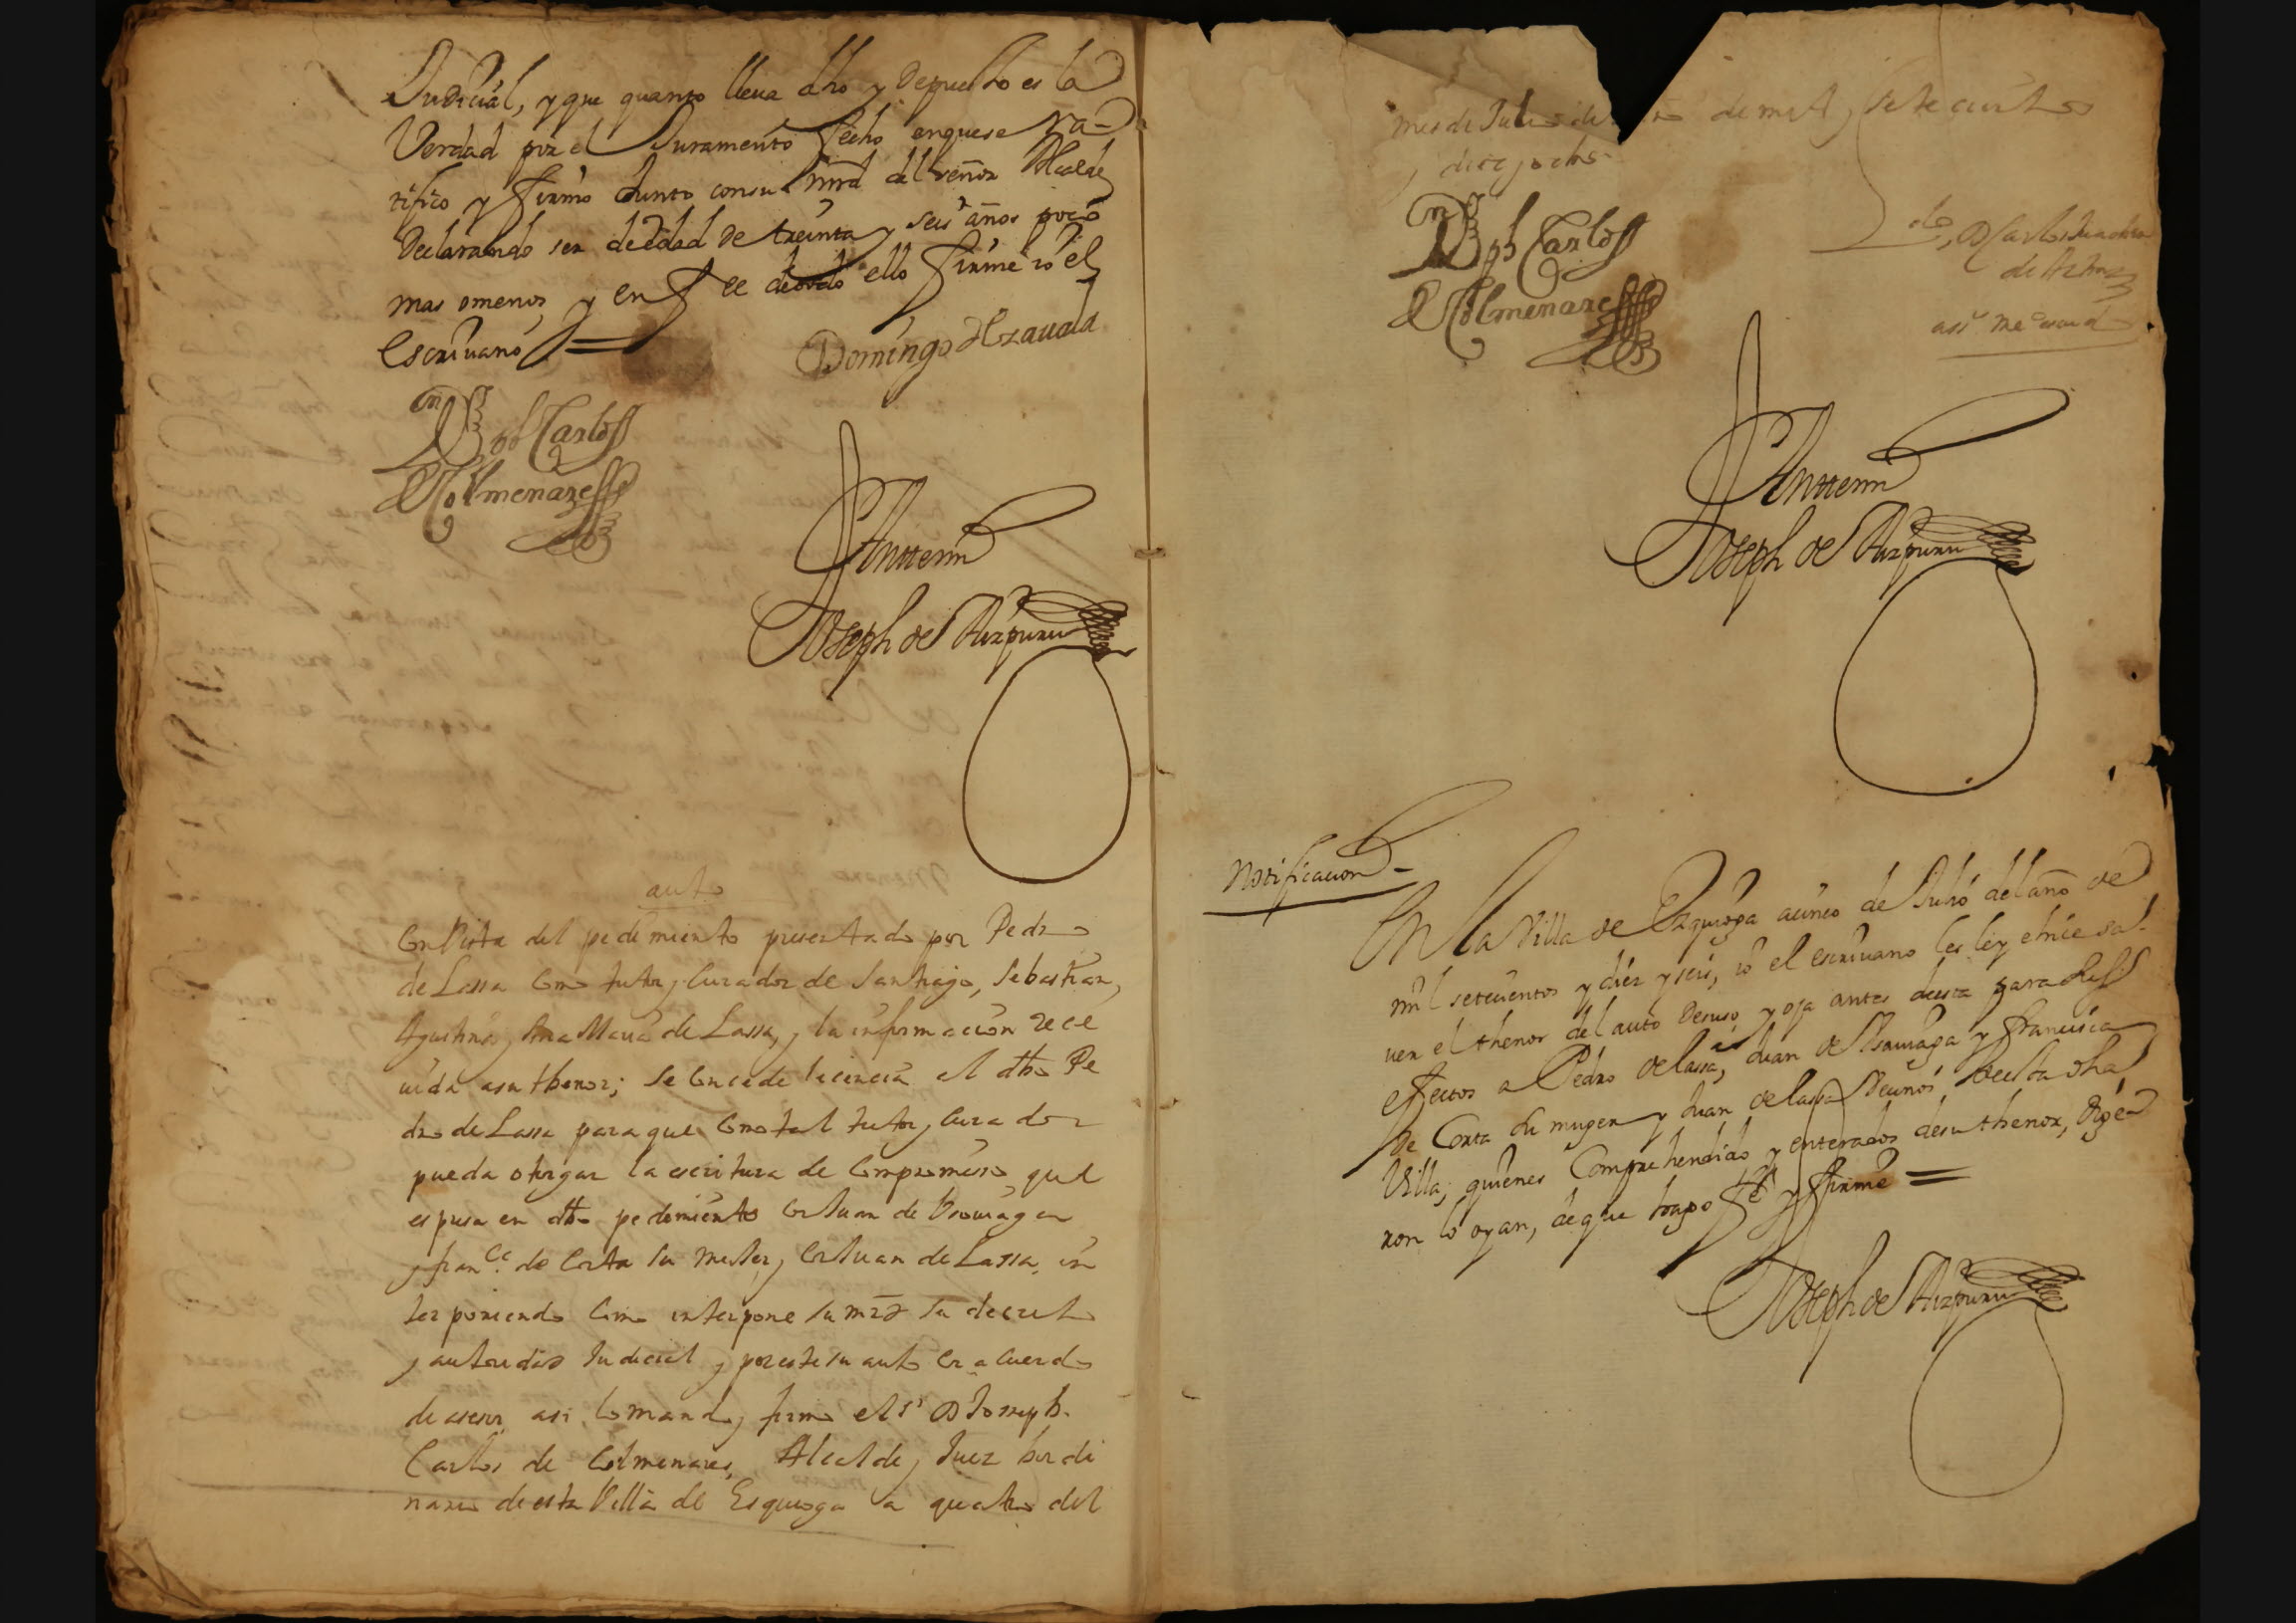 Judicial, y que quanto lleua dho y depuesto es la
Verdad por el Juramento fecho en que se ra-
tifico y firmo Junto con su mrd del señor Alcalde
Declarando ser de edad de treinta y seis años poco
mas omenos, y en fee de todo ello firme io el
escriuano =
Domingo de Ezauala
Dn Jph Carlos
de Colmenares
Antemi
Joseph de Aizpuru
auto
En Vista del pedimiento presentado por Pedro
de Lassa Como tutor y Curador de Santiago, Sebastian,
Agustin y Ana Maria de Lassa, y la informacion rece
uida a su thenor; se Concede licencia al dho Pe
dro de Lassa para que Como tal tutor y Curador
pueda otorgar la escritura de Compromiso que
espresa en dho pedimiento Con Juan de Vsouiaga
y franca de Corta su muller y Con Juan de Lassa, in
terponiendo Como interpone su mrd su decreto
y autoridad Judicial y por este su auto Con acuerdo
de asesor asi lo mando y firmo el Sr D Joseph
Carlos de Colmenares, Alcalde y Juez hordi
nario de esta Villa de Ezquioga a quatro del
mes de Julio de mil y setecientos
y diez y ocho
Dn Jph Carlos
de Colmenares
Antemi
Joseph de Aizpuru
Notificacion -
En la Villa de Ezquioga a cinco de Julio del año de
mil setecientos y diez y seis, io el escriuano les ley e hice sa-
uer el thenor del auto de suso y oja antes desta para sus
efectos a Pedro de lassa, Juan de Vsauiaga y francisca
de Corta su muger y Juan de lassa Vecinos desta dha
Villa; quienes Comprehendido y enterados de su thenor, Dixe-
ron lo oyan, de que hago fe y firme =
Joseph de Aizpuru